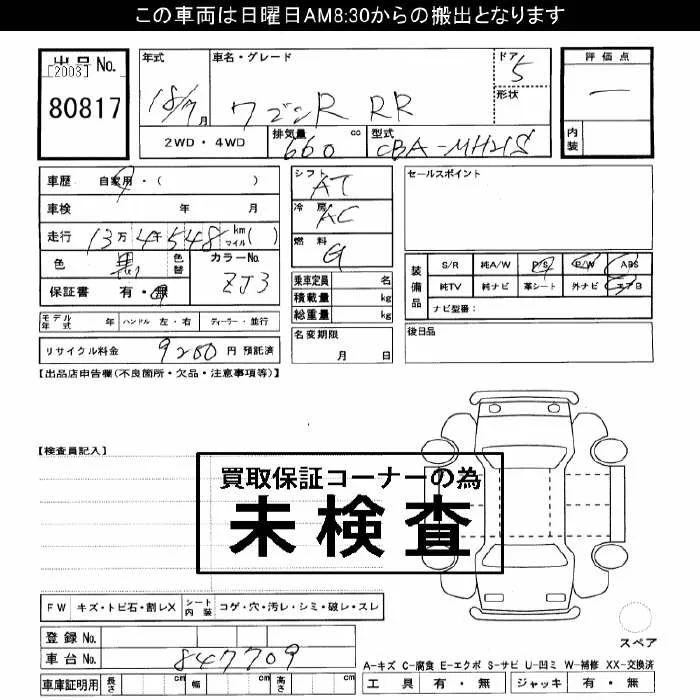 この車両は日曜日AM8:30からの搬出となります
出品No. [2003] 80817
年式 18/7月
車名・グレード ワゴンR RR
ドア 5
形状
評価点 ー
内装
2WD・4WD
排気量 660 cc
型式 CBA-MH21S
車歴 自家用・( )
車検 年 月
走行 13万4千548 km マイル( )
色 黒 色替
カラーNo. ZJ3
保証書 有・無
モデル年式 年 ハンドル 左・右 ディーラー・並行
リサイクル料金 9280 円 預託済
シフト AT
冷房 AC
燃料 G
乗車定員 名
積載量 kg
総重量 kg
名変期限 月 日
セールスポイント
装備品 S/R 純A/W P/S P/W ABS
純TV 純ナビ 革シート 外ナビ エアB
ナビ型番:
後日品
【出品店申告欄(不良箇所・欠品・注意事項等)】
【検査員記入】
買取保証コーナーの為
未検査
FW キズ・トビ石・割レX シート内装 コゲ・穴・汚レ・シミ・破レ・スレ
登録No.
車台No. 847709
車庫証明用 長さ cm 幅 cm 高さ cm
スペア
A-キズ C-腐食 E-エクボ S-サビ U-凹ミ W-補修 XX-交換済
工具 有・無 ジャッキ 有・無